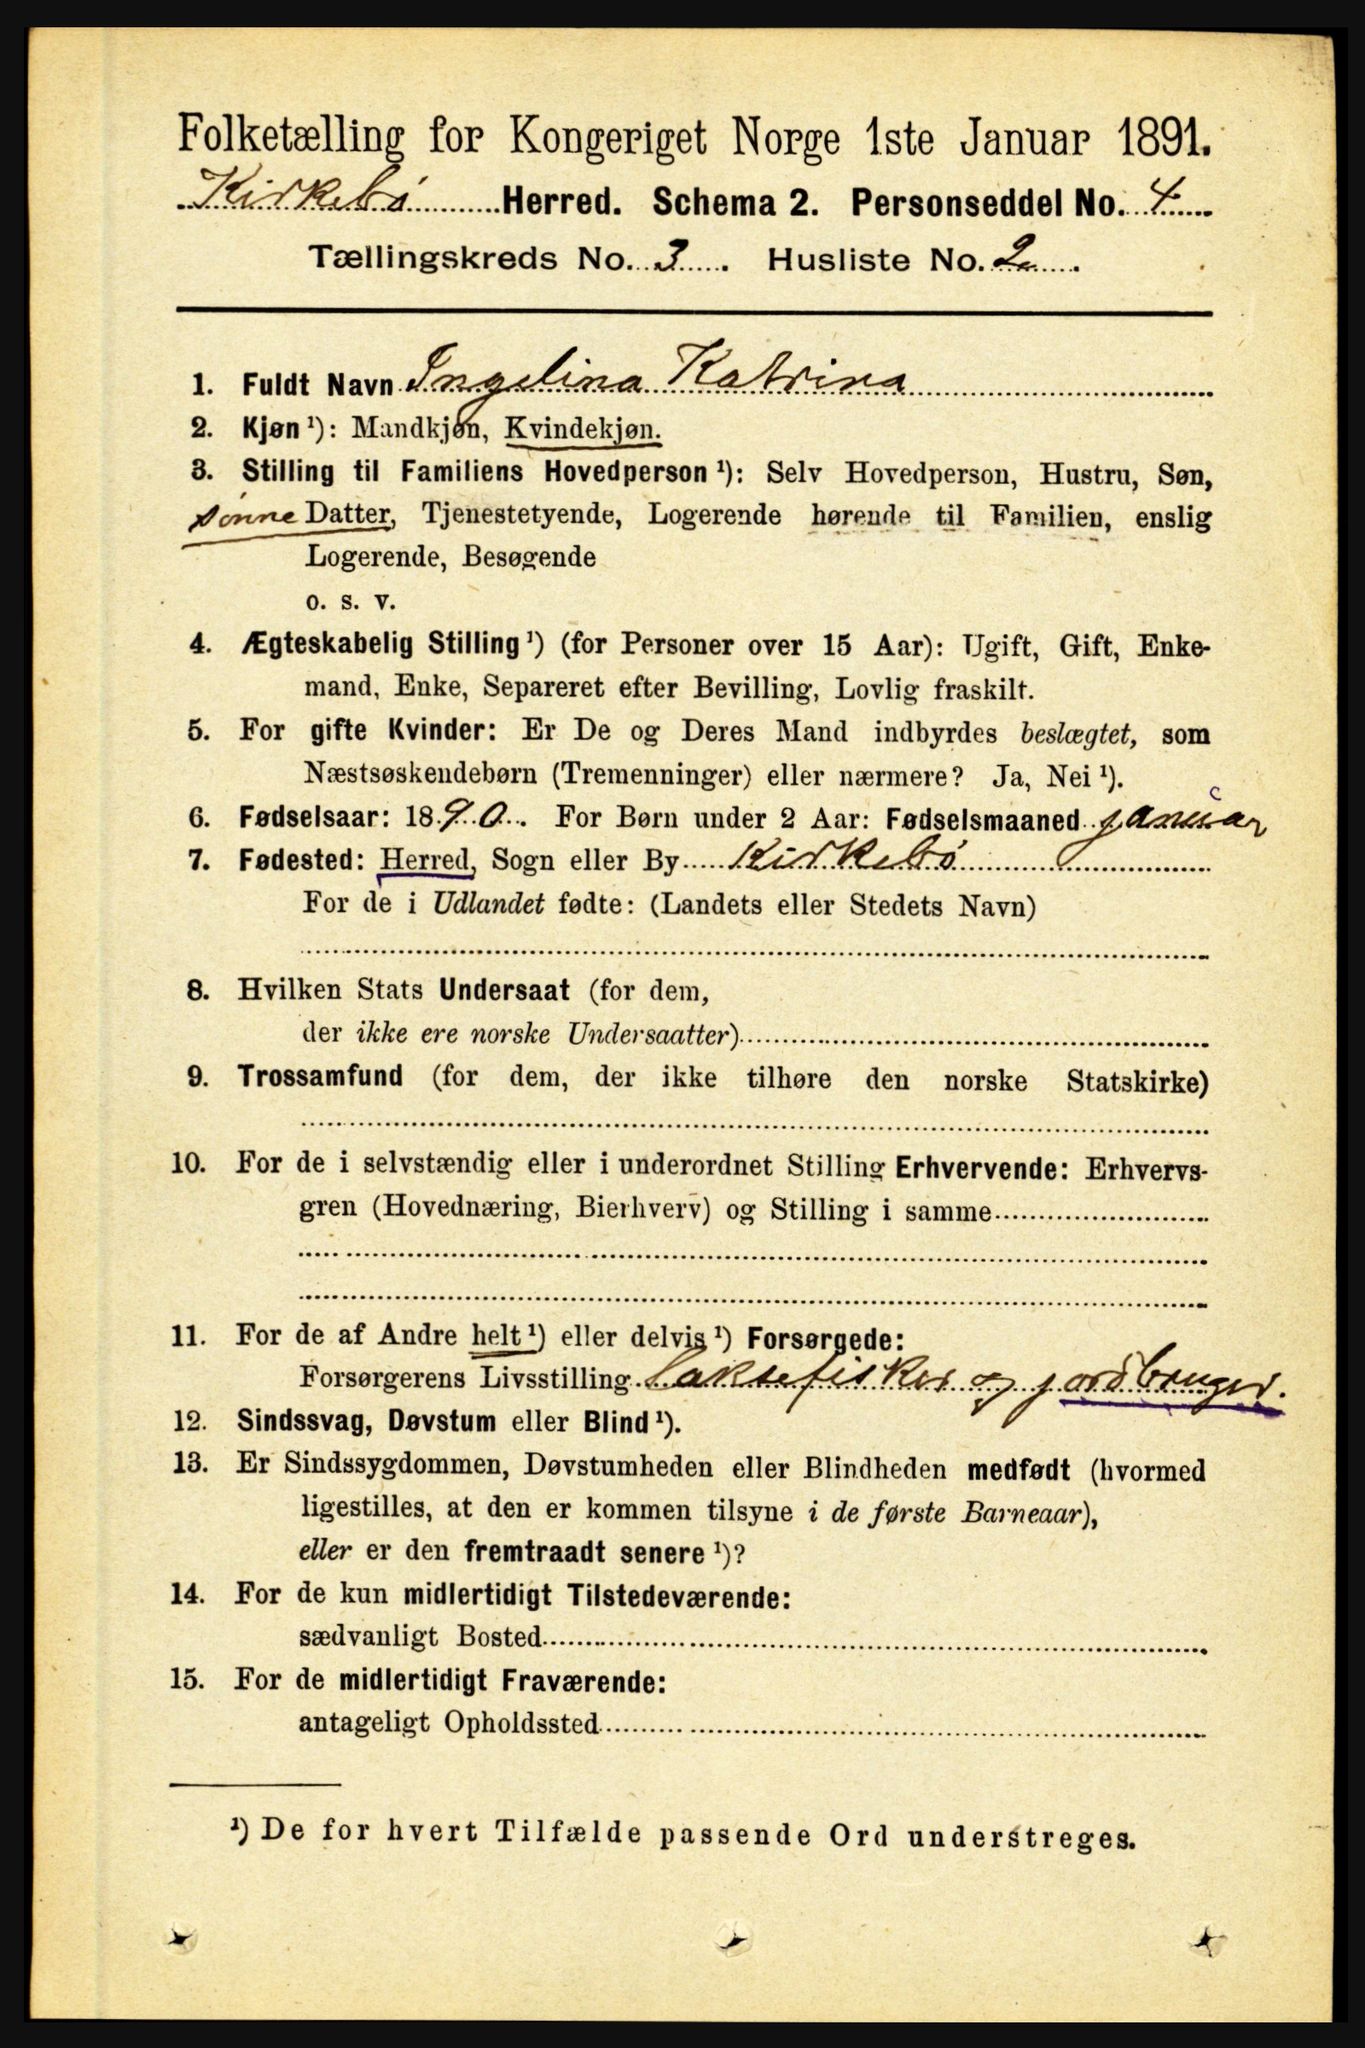 Folketælling for Kongeriget Norge 1ste Januar 1891.
Kirkebø Herred. Schema 2. Personseddel No. 4
Tællingskreds No. 3. Husliste No. 2.
1. Fuldt Navn Ingelina Katrina
2. Kjøn ¹): Mandkjøn, Kvindekjøn.
3. Stilling til Familiens Hovedperson ¹): Selv Hovedperson, Hustru, Søn,
sønne Datter, Tjenestetyende, Logerende hørende til Familien, enslig
Logerende, Besøgende
o. s. v.
4. Ægteskabelig Stilling ¹) (for Personer over 15 Aar): Ugift, Gift, Enke-
mand, Enke, Separeret efter Bevilling, Lovlig fraskilt.
5. For gifte Kvinder: Er De og Deres Mand indbyrdes beslægtet, som
Næstsøskendebørn (Tremenninger) eller nærmere? Ja, Nei ¹).
6. Fødselsaar: 1890. For Børn under 2 Aar: Fødselsmaaned januar
7. Fødested: Herred, Sogn eller By Kirkebø
For de i Udlandet fødte: (Landets eller Stedets Navn)
8. Hvilken Stats Undersaat (for dem,
der ikke ere norske Undersaatter)
9. Trossamfund (for dem, der ikke tilhøre den norske Statskirke)
10. For de i selvstændig eller i underordnet Stilling Erhvervende: Erhvervs-
gren (Hovednæring, Bierhverv) og Stilling i samme
11. For de af Andre helt ¹) eller delvis ¹) Forsørgede:
Forsørgerens Livsstilling Laksefisker og jordbruger.
12. Sindssvag, Døvstum eller Blind ¹).
13. Er Sindssygdommen, Døvstumheden eller Blindheden medfødt (hvormed
ligestilles, at den er kommen tilsyne i de første Barneaar),
eller er den fremtraadt senere ¹)?
14. For de kun midlertidigt Tilstedeværende:
sædvanligt Bosted
15. For de midlertidigt Fraværende:
antageligt Opholdssted
¹) De for hvert Tilfælde passende Ord understreges.